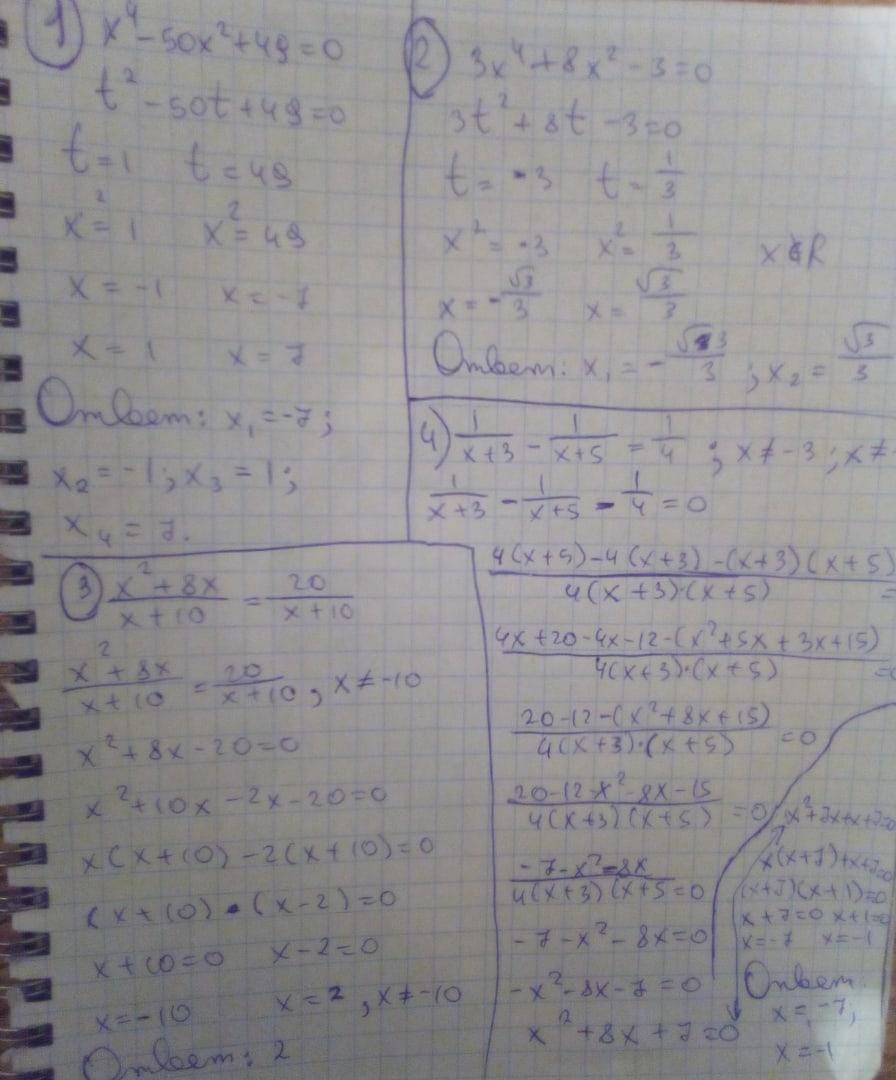 1) x⁴ - 50x² + 49 = 0
t² - 50t + 49 = 0
t = 1 t = 49
x² = 1 x² = 49
x = -1 x = -7
x = 1 x = 7
Ответ: x₁ = -7;
x₂ = -1; x₃ = 1;
x₄ = 7.
2) 3x⁴ + 8x² - 3 = 0
3t² + 8t - 3 = 0
t = -3 t = 1/3
x² = -3 x² = 1/3 x∉R
x = -√3/3 x = √3/3
Ответ: x₁ = -√3/3 ; x₂ = √3/3
3) (x² + 8x)/(x + 10) = 20/(x + 10)
(x² + 8x)/(x + 10) = 20/(x + 10), x ≠ -10
x² + 8x - 20 = 0
x² + 10x - 2x - 20 = 0
x(x + 10) - 2(x + 10) = 0
(x + 10) · (x - 2) = 0
x + 10 = 0 x - 2 = 0
x = -10 x = 2, x ≠ -10
Ответ: 2
4) 1/(x+3) - 1/(x+5) = 1/4 ; x ≠ -3 ; x ≠
1/(x+3) - 1/(x+5) - 1/4 = 0
(4(x+5) - 4(x+3) - (x+3)(x+5))/(4(x+3)·(x+5)) =
(4x + 20 - 4x - 12 - (x² + 5x + 3x + 15))/(4(x+3)·(x+5)) = 0
(20 - 12 - (x² + 8x + 15))/(4(x+3)·(x+5)) = 0
(20 - 12 - x² - 8x - 15)/(4(x+3)(x+5)) = 0
(-7 - x² - 8x)/(4(x+3)(x+5) = 0
-7 - x² - 8x = 0
-x² - 8x - 7 = 0
x² + 8x + 7 = 0
x² + 7x + x + 7 = 0
x(x+7) + x + 7 = 0
(x+7)(x+1) = 0
x + 7 = 0 x + 1 = 0
x = -7 x = -1
Ответ:
x = -7,
x = -1